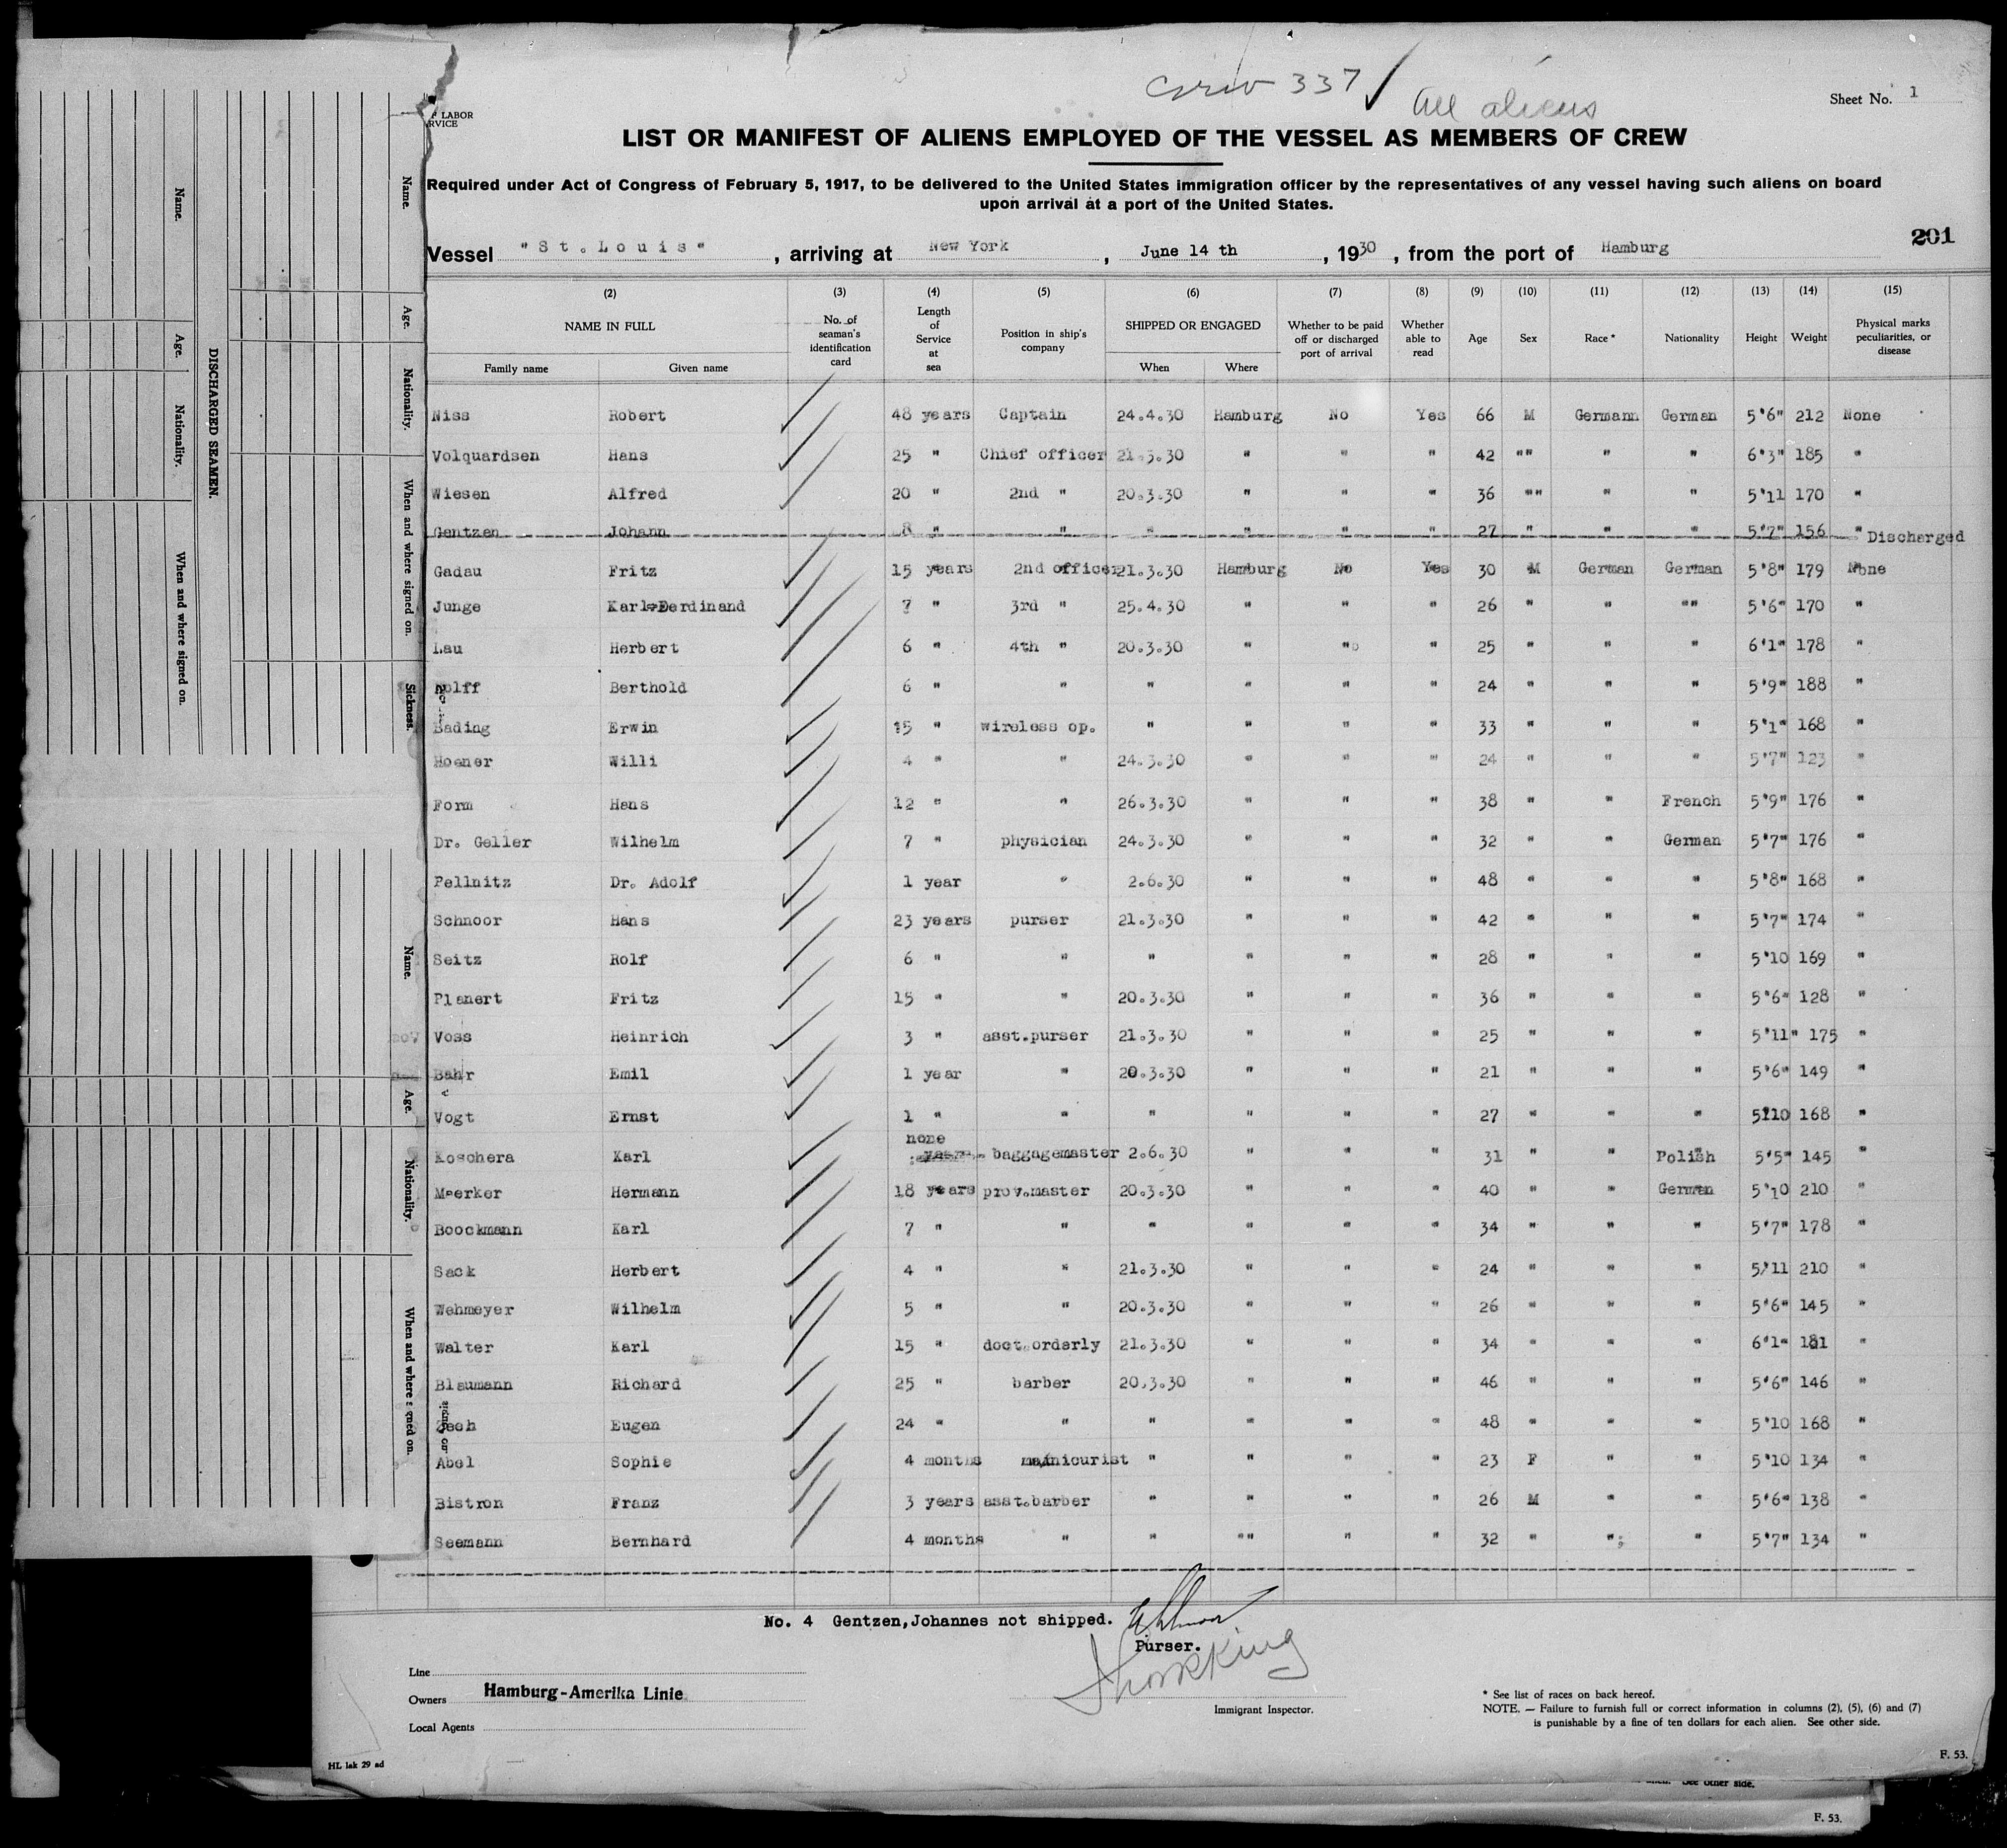 Crew 337 ✓ All aliens
Sheet No. 1
LABOR
RVICE
LIST OR MANIFEST OF ALIENS EMPLOYED OF THE VESSEL AS MEMBERS OF CREW
Required under Act of Congress of February 5, 1917, to be delivered to the United States immigration officer by the representatives of any vessel having such aliens on board
upon arrival at a port of the United States.
201
Vessel "St. Louis", arriving at New York, June 14 th, 1930, from the port of Hamburg
(2) (3) (4) (5) (6) (7) (8) (9) (10) (11) (12) (13) (14) (15)
NAME IN FULL No. of seaman's identification card Length of Service at sea Position in ship's company SHIPPED OR ENGAGED Whether to be paid off or discharged port of arrival Whether able to read Age Sex Race * Nationality Height Weight Physical marks peculiarities, or disease
Family name Given name When Where
Niss Robert 48 years Captain 24.4.30 Hamburg No Yes 66 M Germann German 5'6" 212 None
Volquardsen Hans 25 " Chief officer 21.3.30 " " " 42 "" " " 6'3" 185 "
Wiesen Alfred 20 " 2nd " 20.3.30 " " " 36 "" " " 5'11 170 "
Gentzen Johann 8 " " " " " " 27 " " " 5'7" 156 " Discharged
Gadau Fritz 15 years 2nd officer 21.3.30 Hamburg No Yes 30 M German German 5'8" 179 None
Junge Karl-Ferdinand 7 " 3rd " 25.4.30 " " " 26 " " "" 5'6" 170 "
Lau Herbert 6 " 4th " 20.3.30 " " " 25 " " " 6'1" 178 "
Berthold 6 " " " " " " 24 " " " 5'9" 188 "
Bading Erwin 15 " wireless op. " " " " 33 " " " 5'1" 168 "
Hoener Willi 4 " " 24.3.30 " " " 24 " " " 5'7" 123 "
Form Hans 12 " " 26.3.30 " " " 38 " " French 5'9" 176 "
Dr. Geller Wilhelm 7 " physician 24.3.30 " " " 32 " " German 5'7" 176 "
Pellnitz Dr. Adolf 1 year " 2.6.30 " " " 48 " " " 5'8" 168 "
Schnoor Hans 23 years purser 21.3.30 " " " 42 " " " 5'7" 174 "
Seitz Rolf 6 " " " " " " 28 " " " 5'10 169 "
Planert Fritz 15 " " 20.3.30 " " " 36 " " " 5'6" 128 "
Voss Heinrich 3 " asst.purser 21.3.30 " " " 25 " " " 5'11" 175 "
Bahr Emil 1 year " 20.3.30 " " " 21 " " " 5'6" 149 "
Vogt Ernst 1 " " " " " " 27 " " " 5'10 168 "
Koschera Karl none years baggagemaster 2.6.30 " " " 31 " " Polish 5'5" 145 "
Maerker Hermann 18 years prov.master 20.3.30 " " " 40 " " German 5'10 210 "
Boockmann Karl 7 " " " " " " 34 " " " 5'7" 178 "
Sack Herbert 4 " " 21.3.30 " " " 24 " " " 5'11 210 "
Wehmeyer Wilhelm 5 " " 20.3.30 " " " 26 " " " 5'6" 145 "
Walter Karl 15 " doct.orderly 21.3.30 " " " 34 " " " 6'1" 181 "
Blaumann Richard 25 " barber 20.3.30 " " " 46 " " " 5'6" 146 "
Zech Eugen 24 " " " " " " 48 " " " 5'10 168 "
Abel Sophie 4 months manicurist " " " " 23 F " " 5'10 134 "
Bistron Franz 3 years asst.barber " " " " 26 M " " 5'6" 138 "
Seemann Bernhard 4 months " " "" " " 32 " " " 5'7" 134 "
No. 4 Gentzen,Johannes not shipped.
Purser.
Line
Owners Hamburg-Amerika Linie
Local Agents
Immigrant Inspector.
* See list of races on back hereof.
NOTE. — Failure to furnish full or correct information in columns (2), (5), (6) and (7)
is punishable by a fine of ten dollars for each alien. See other side.
HL lak 29 ad
F. 53.
See other side.
F. 53.
DISCHARGED SEAMEN.
Name. Age. Nationality. When and where signed on.
Name. Age. Nationality. When and where signed on. Sickness.
Name. Age. Nationality. When and where signed on.